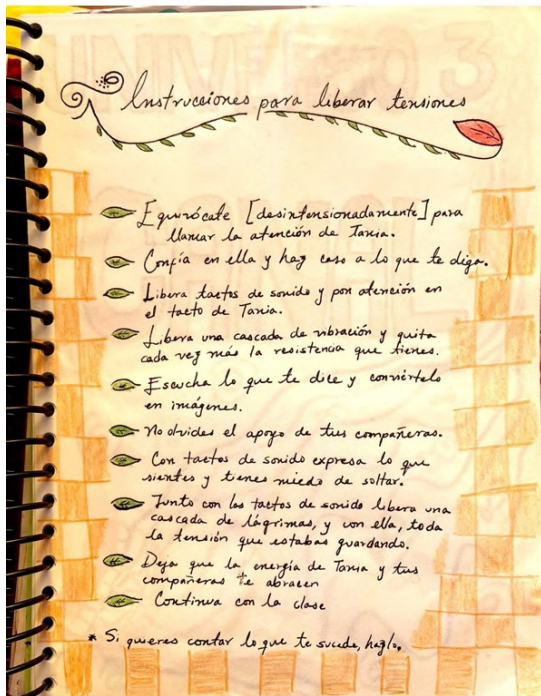 Instrucciones para liberar tensiones
Equivócate [desintensionadamente] para
llamar la atención de Tania.
Confía en ella y haz caso a lo que te diga.
Libera tactos de sonido y pon atención en
el tacto de Tania.
Libera una cascada de vibración y quita
cada vez más la resistencia que tienes.
Escucha lo que te dice y conviértelo
en imágenes.
No olvides el apoyo de tus compañeras.
Con tactos de sonido expresa lo que
sientes y tienes miedo de soltar.
Junto con los tactos de sonido libera una
cascada de lágrimas, y con ella, toda
la tensión que estabas guardando.
Deja que la energía de Tania y tus
compañeras te abracen
Continua con la clase
* Si quieres contar lo que te sucede, hazlo.